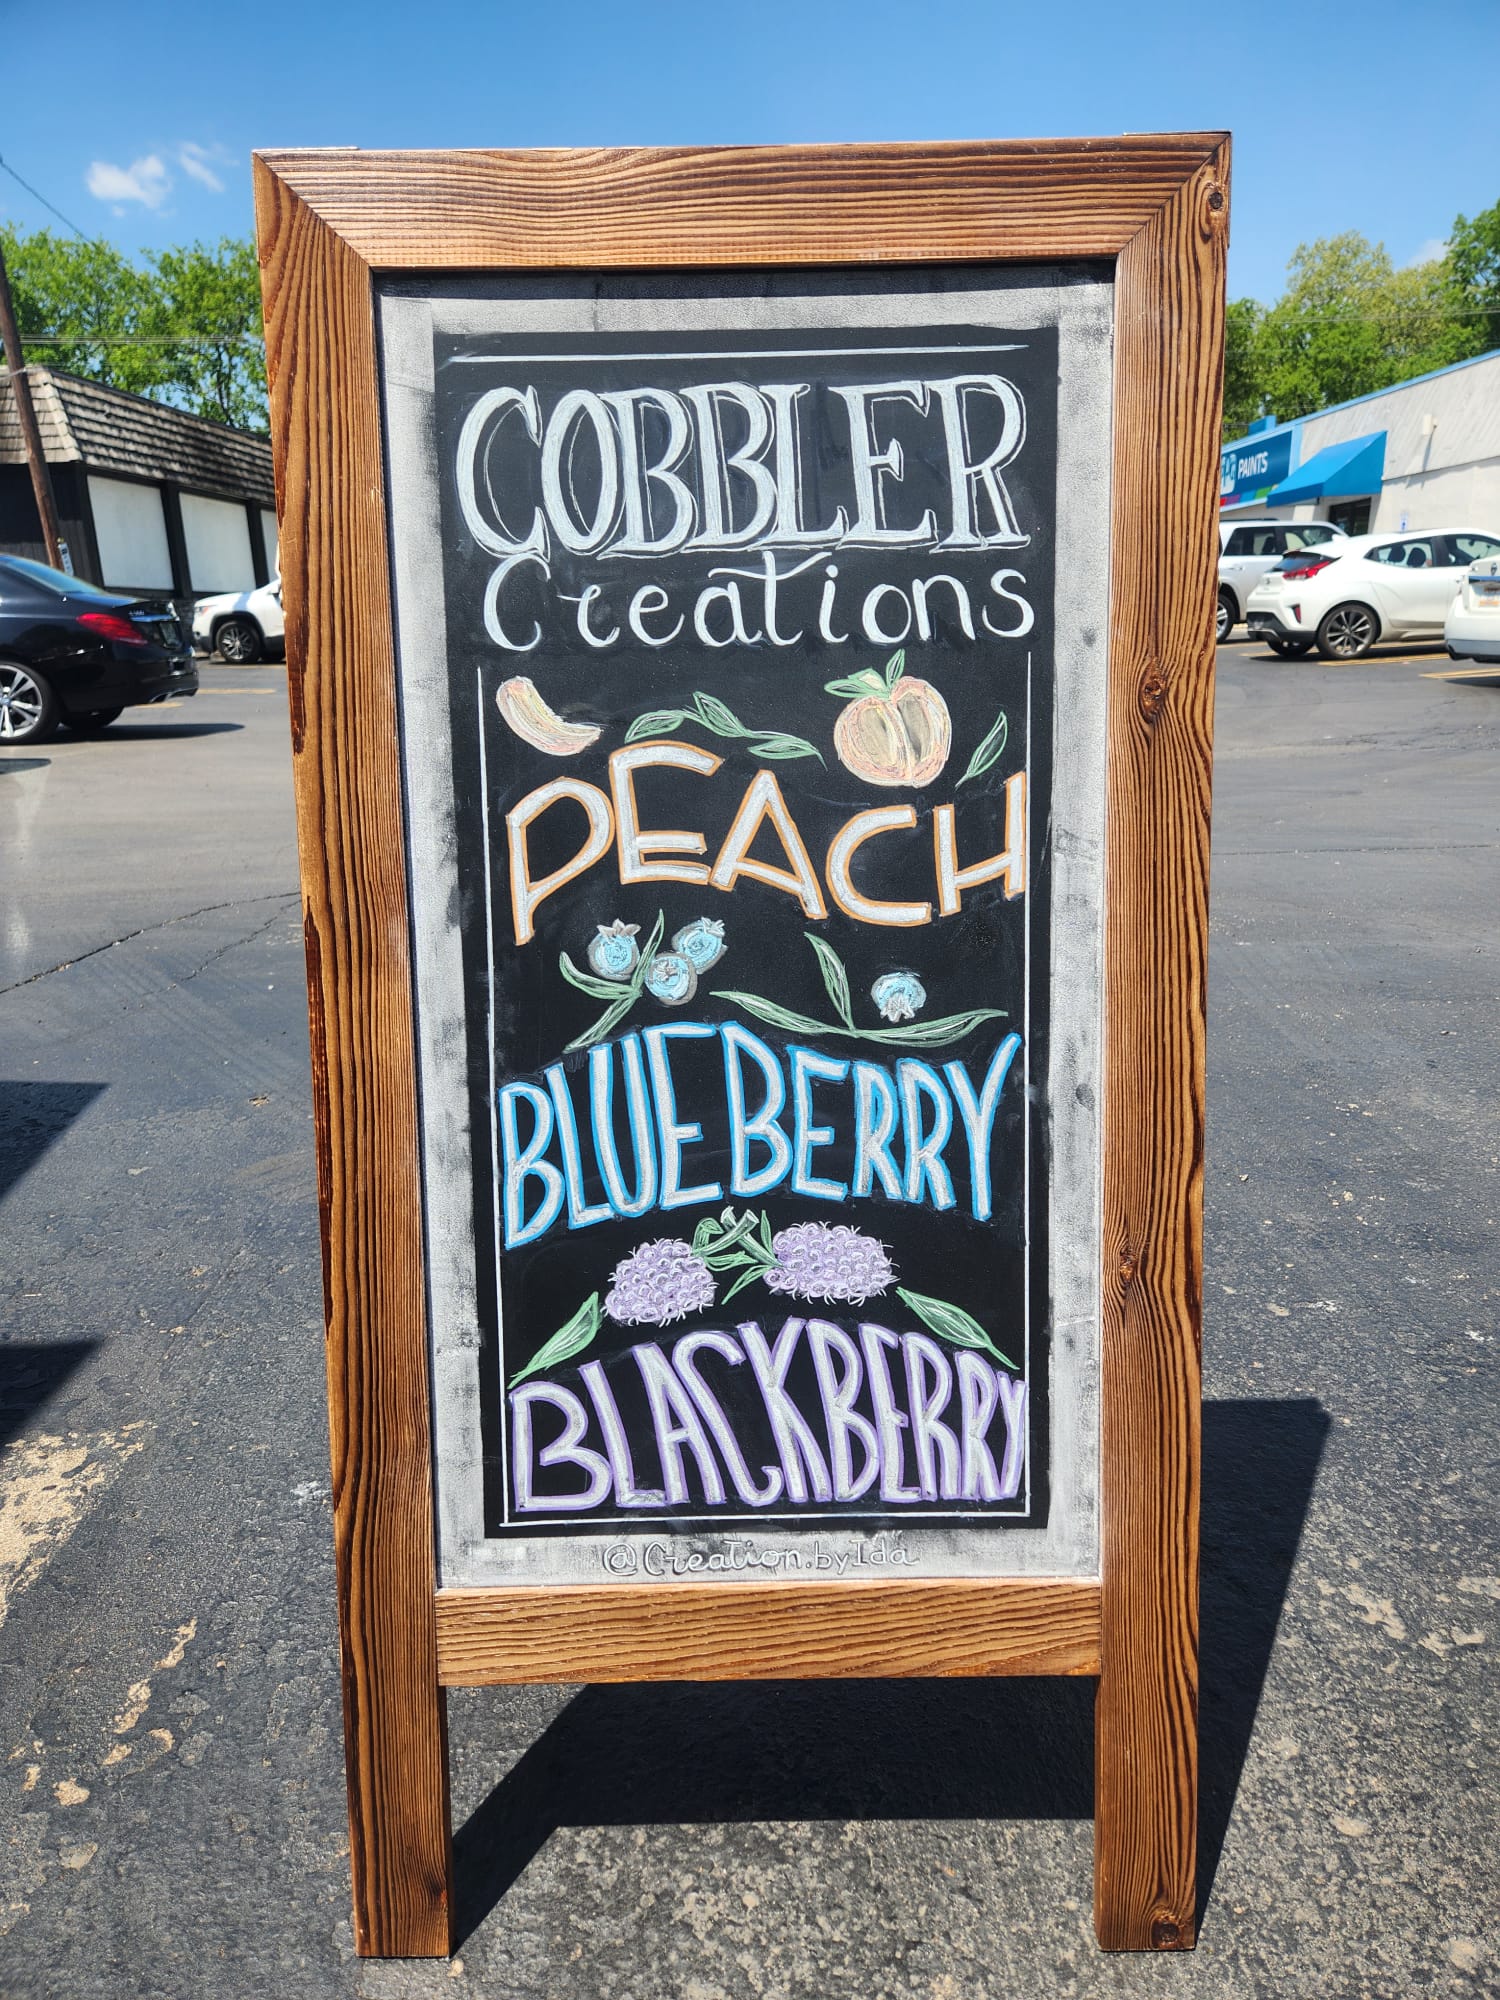 COBBLER
Creations
PEACH
BLUEBERRY
BLACKBERRY
@Creation.byIda
PAINTS